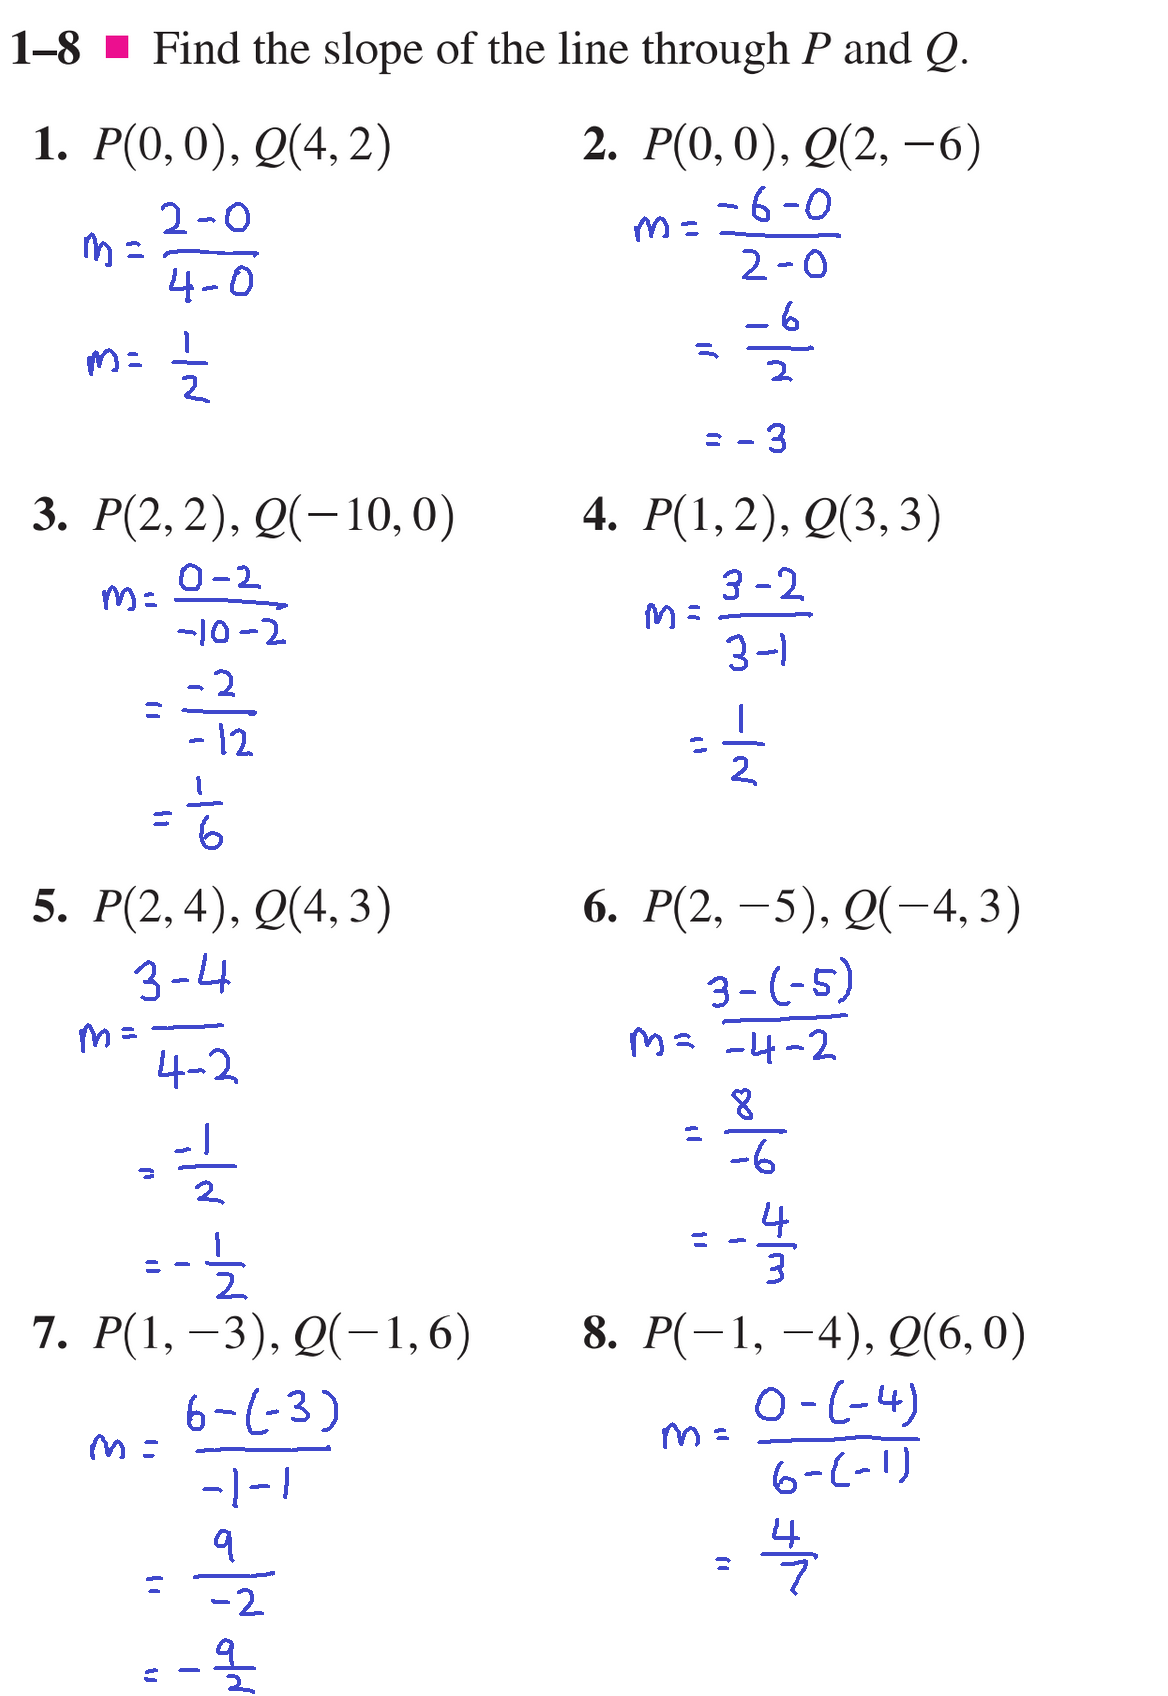 1–8 ■ Find the slope of the line through P and Q.
1. P(0, 0), Q(4, 2)
m = (2-0)/(4-0)
m = 1/2
2. P(0, 0), Q(2, −6)
m = (-6-0)/(2-0)
= -6/2
= -3
3. P(2, 2), Q(−10, 0)
m = (0-2)/(-10-2)
= -2/-12
= 1/6
4. P(1, 2), Q(3, 3)
m = (3-2)/(3-1)
= 1/2
5. P(2, 4), Q(4, 3)
m = (3-4)/(4-2)
= -1/2
= -1/2
6. P(2, −5), Q(−4, 3)
m = (3-(-5))/(-4-2)
= 8/-6
= -4/3
7. P(1, −3), Q(−1, 6)
m = (6-(-3))/(-1-1)
= 9/-2
= -9/2
8. P(−1, −4), Q(6, 0)
m = (0-(-4))/(6-(-1))
= 4/7